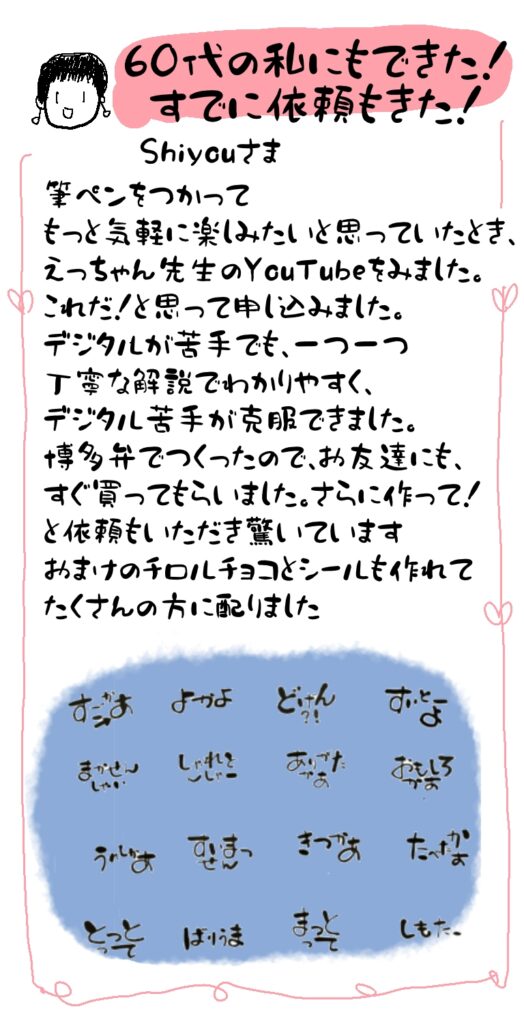 60代の私にもできた!
すでに依頼もきた!
Shiyouさま
筆ペンをつかって
もっと気軽に楽しみたいと思っていたとき、
えっちゃん先生のYouTubeをみました。
これだ!と思って申し込みました。
デジタルが苦手でも、一つ一つ
丁寧な解説でわかりやすく、
デジタル苦手が克服できました。
博多弁でつくったので、お友達にも、
すぐ買ってもらいました。さらに作って!
と依頼もいただき驚いています
おまけのチロルチョコとシールも作れて
たくさんの方に配りました
すごかあ よかよ どげん?! すいとーよ
まかせんしゃい しゃれとーしゃー ありがたかぁ おもしろかぁ
うれしかあ すいまっせん きつかあ たべたかぁ
とっとっと ばりうま まっとって しもたー